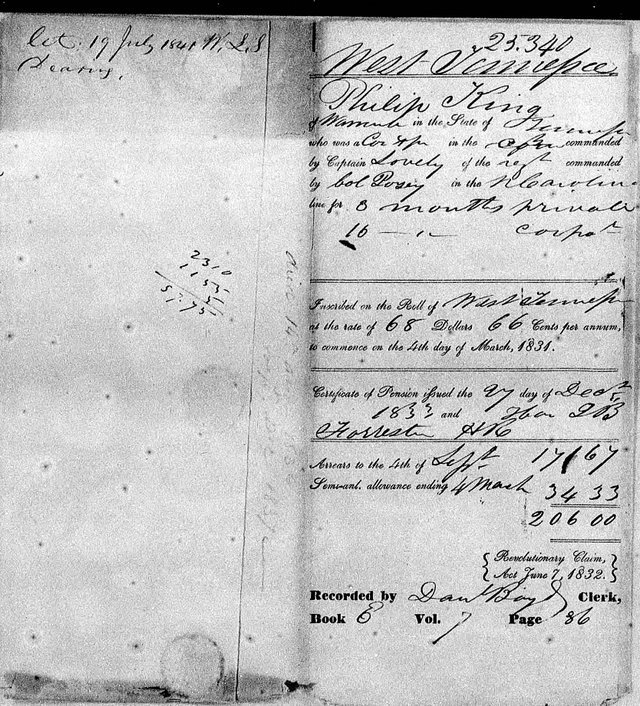 let. 19 July 1841 W. L. S
Dearing.
2310
1155
5
51.75
25.340
West Tennessee
Philip King
of in the State of Tennessee
who was a Cor & pr in the commanded
by Captain Lovely of the regt commanded
by Col Posey in the N Carolina
line for 8 months private
16 — " corpol
Inscribed on the Roll of West Tennessee
at the rate of 68 Dollars 66 Cents per annum,
to commence on the 4th day of March, 1831.
Certificate of Pension issued the 27 day of Decr
1833 and Hon
Forrester HR
Arrears to the 4th of Sept 171 67
Semi-anl. allowance ending 4 March 34 33
206 00
Revolutionary Claim,
Act June 7, 1832.
Recorded by Danl Boyd Clerk,
Book E Vol. 7 Page 86